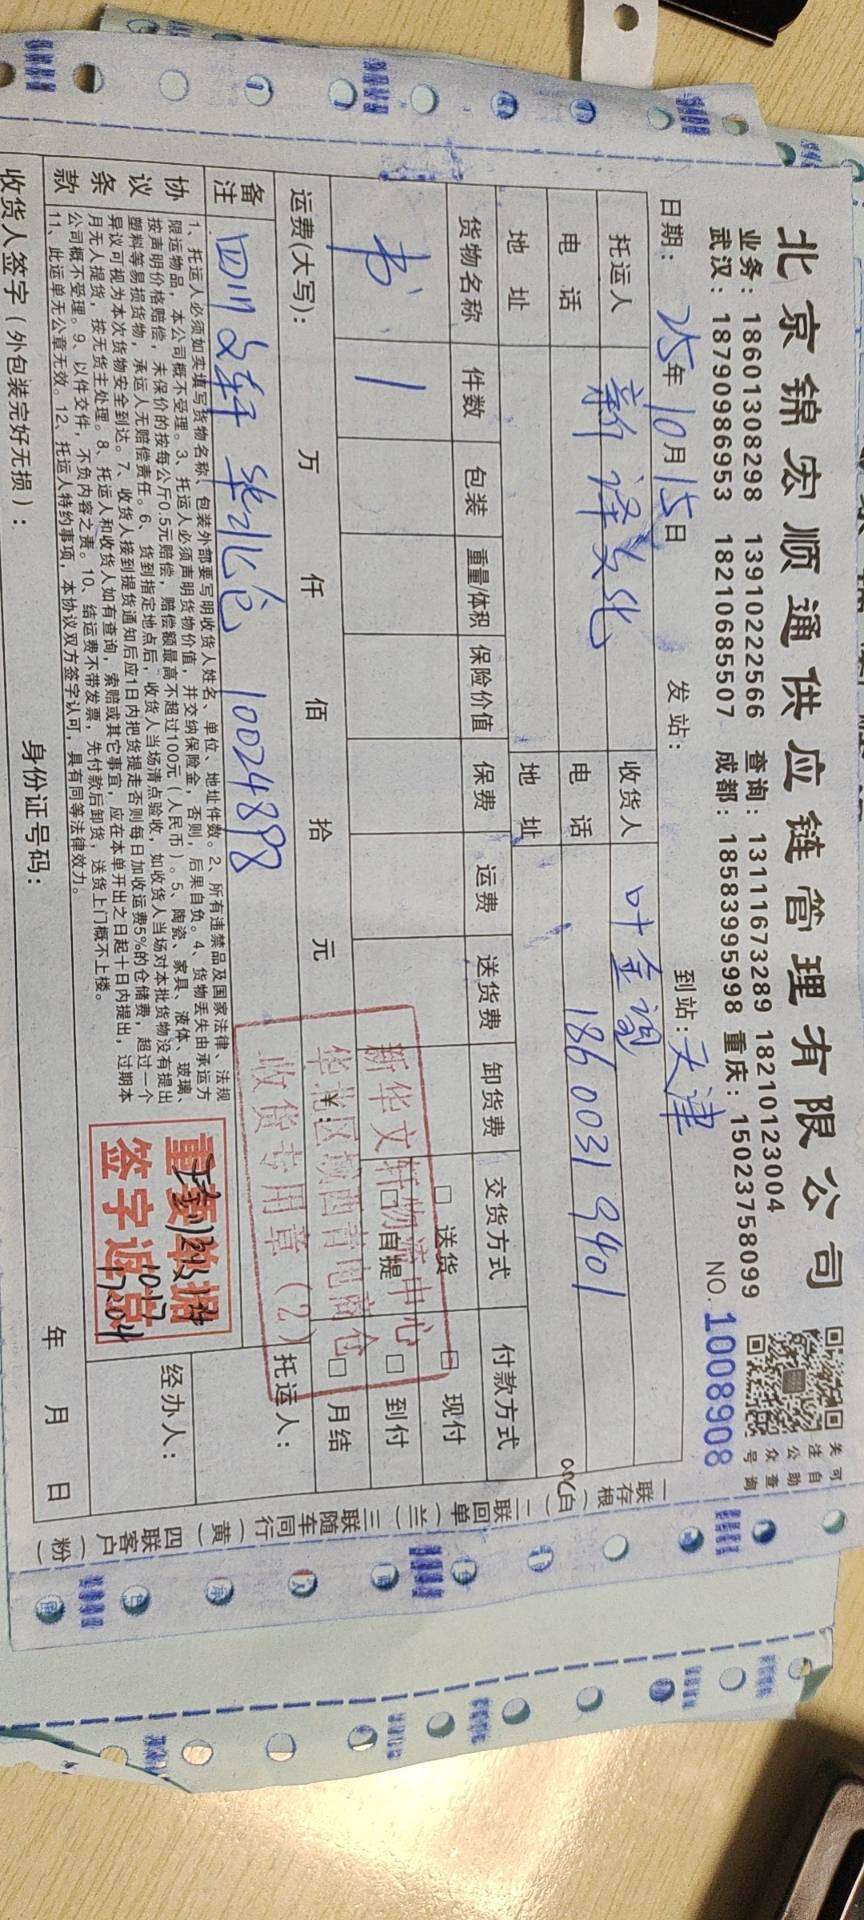 北京锦宏顺通供应链管理有限公司
业务：18601308298 13910222566 查询：13111673289 18210123004
武汉：18790986953 18210685507 成都：18583995998 重庆：15023758099
关注公众号
可自助查询
日期：25年10月15日 发站： 到站：天津 NO. 1008908
托运人 新泽文化 收货人 叶金润
电话 电话 18600319401
地址 地址
货物名称 件数 包装 重量/体积 保险价值 保费 运费 送货费 卸货费 交货方式 付款方式
书 1 □送货 □现付
□自提 □到付
□月结
运费(大写)： 万 仟 佰 拾 元 ¥：
新华文轩物流中心
华北区域西青电商仓
收货专用章（2）
备注 四川文轩 华北仓 10024898
托运人：
协议条款
1、托运人必须如实填写货物名称、包装外部要写明收货人姓名、单位、地址件数。2、所有违禁品及国家法律、法规
限运物品，本公司概不受理。3、托运人必须声明货物价值，并交纳保险金，否则，后果自负。4、货物丢失由承运方
按声明价格赔偿，未保价的按每公斤0.5元赔偿，赔偿额最高不超过100元（人民币）。5、陶瓷、家具、液体、玻璃、
塑料等易损货物，承运人无赔偿责任。6、货到指定地点后，收货人当场清点验收，如收货人当场对本批货物没有提出
异议可视为本次货物安全到达。7、收货人接到提货通知后应1日内把货提走否则每日加收运费5%的仓储费，超过一个
月无人提货，按无货主处理。8、托运人和收货人如有查询，索赔或其它事宜，应在本单开出之日起十日内提出，过期本
公司概不受理。9、以件交件，不负内容之责。10、结运费不带发票，先付款后卸货，送货上门概不上楼。
11、此运单无公章无效。12、托运人特约事项，本协议双方签字认可，具有同等法律效力。
重要单据
签字返京
10.17
17:04
经办人：
收货人签字（外包装完好无损）： 身份证号码： 年 月 日
一联存根（白）二联回单（兰）三联随车同行（黄）四联客户（粉）